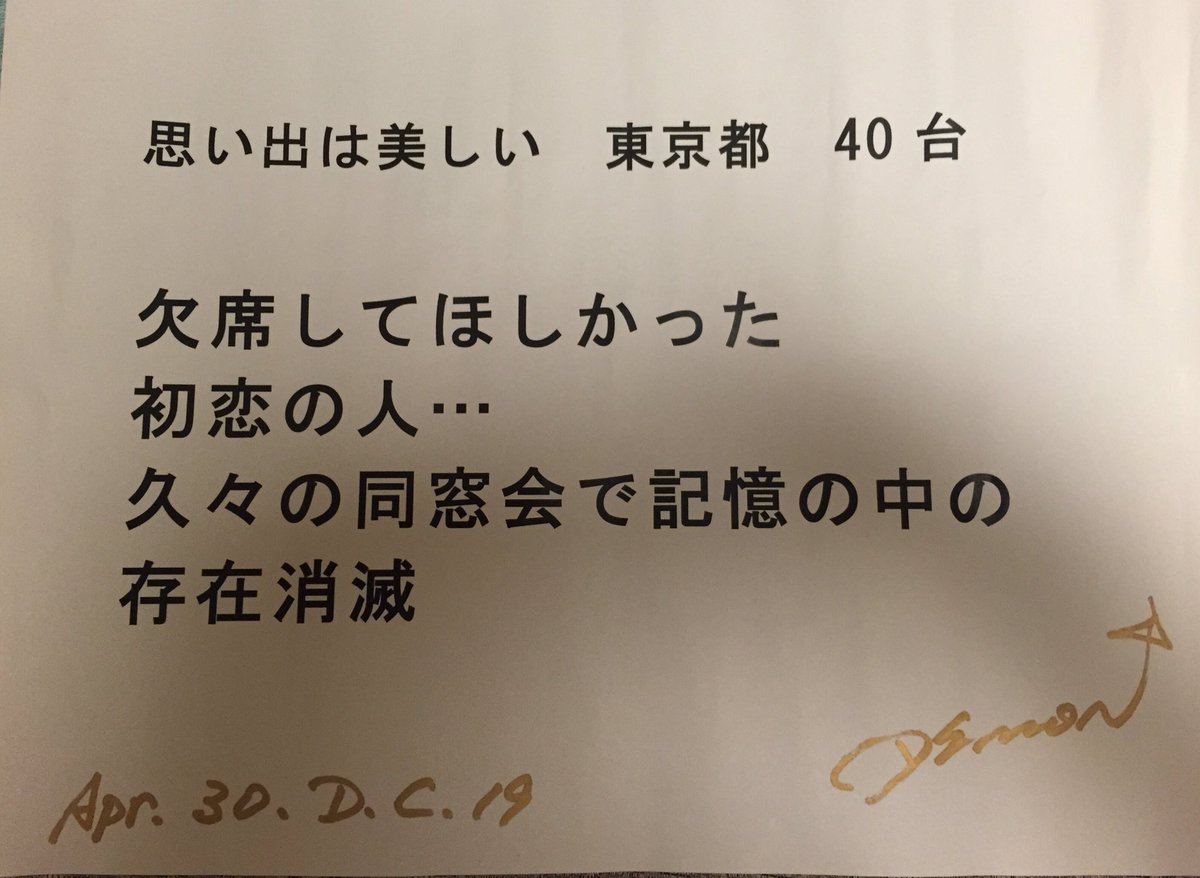 思い出は美しい　東京都　40台
欠席してほしかった
初恋の人…
久々の同窓会で記憶の中の
存在消滅
DEMON
Apr. 30. D.C.19